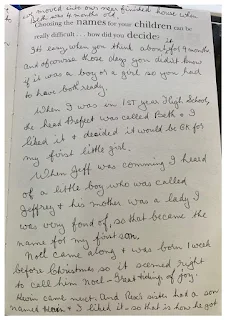 we mooved into our new finished house when
Beth was 4 months old
Choosing the names for your children can be
really difficult . . . how did you decide?
Its easy when you think about it for 9 months
and ofcourse those days you didnt know
if it was a boy or a girl so you had
to have both ready.
When I was in 1st year High School,
the head Prefect was called Beth & I
liked it & decided it would be OK for
my first little girl.
When Jeff was comming I heard
of a little boy who was called
Jeffrey & his mother was a lady I
was very fond of, so that became the
name for my first son.
Noel came along & was born 1 week
before Christmas so it seemed right
to call him noel - Great tidings of joy.
Kevin came next. And Rex's sister had a son
named Kevin & I liked it - so that is how he got